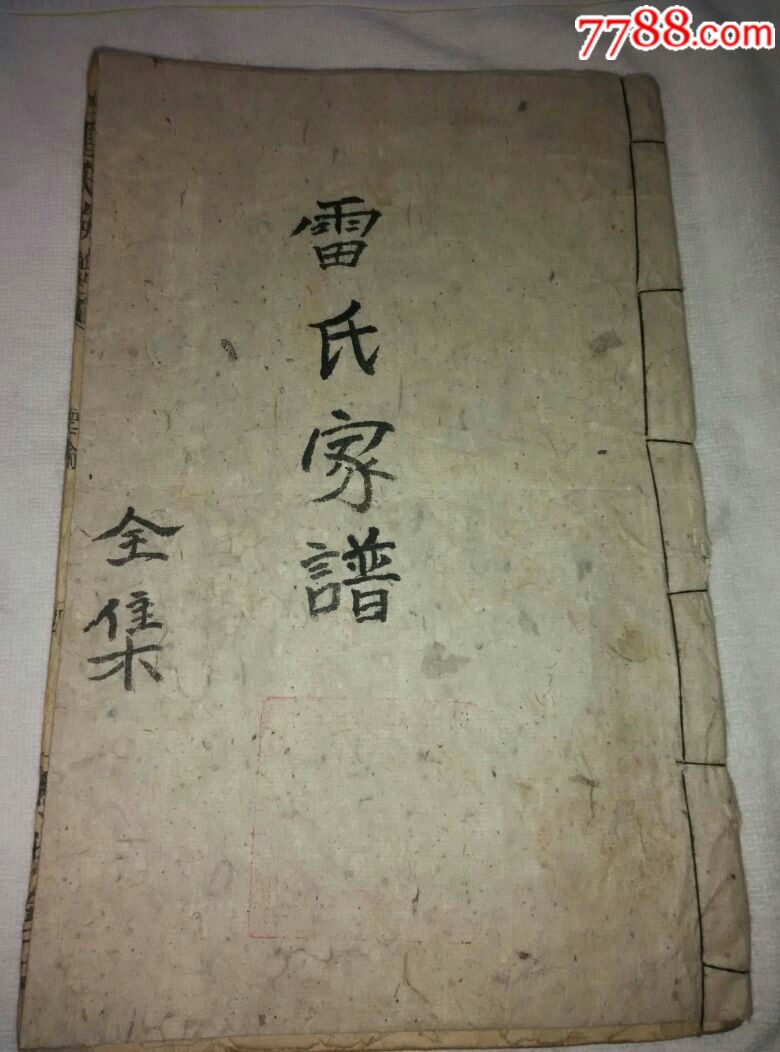 7788.com
雷氏家譜
全集